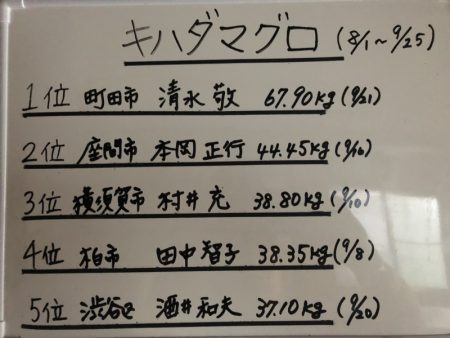 キハダマグロ (8/1～9/25)
1位 町田市 清水 敬 67.90kg (9/21)
2位 座間市 本岡 正行 44.45kg (9/16)
3位 横須賀市 村井 充 38.80kg (9/10)
4位 柏市 田中智子 38.35kg (9/8)
5位 渋谷区 酒井和夫 37.10kg (9/20)